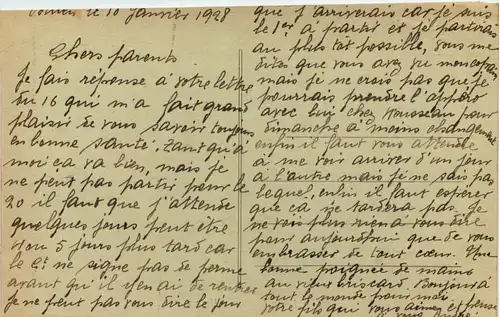 le 10 Janvier 1928
Chers parents
Je fais réponse à votre lettre
du 16 qui m'a fait grand
plaisir de vous savoir toujours
en bonne santé. Tant qu'à
moi ça va bien, mais je
ne peut pas partir pour le
20 il faut que j'attende
quelques jours peut être
4 ou 5 jours plus tard car
le Ct ne signe pas de perme
avant qu'il y en ai de rentrer
je ne peut pas vous dire le jour
que j'arriverais car je suis
le 1er à partir et je partirais
au plus tôt possible, vous me
dites que vous avez vu mon copain
mais je ne crois pas que je
pourrais prendre l'apéro
avec lui chez Rousseau pour
dimanche à moins changement
enfin il faut vous attendre
à me voir arriver d'un jour
à l'autre mais je ne sais pas
lequel, enfin il faut espérer
que ca ne tardera pas. Je
ne vois plus rien à vous dire
pour aujourdhui que de vous
embrasser de tout cœur. Une
bonne poignée de mains
au vieux Bonjour à
tout le monde pour moi
votre fils qui vous aime et pense
à vous